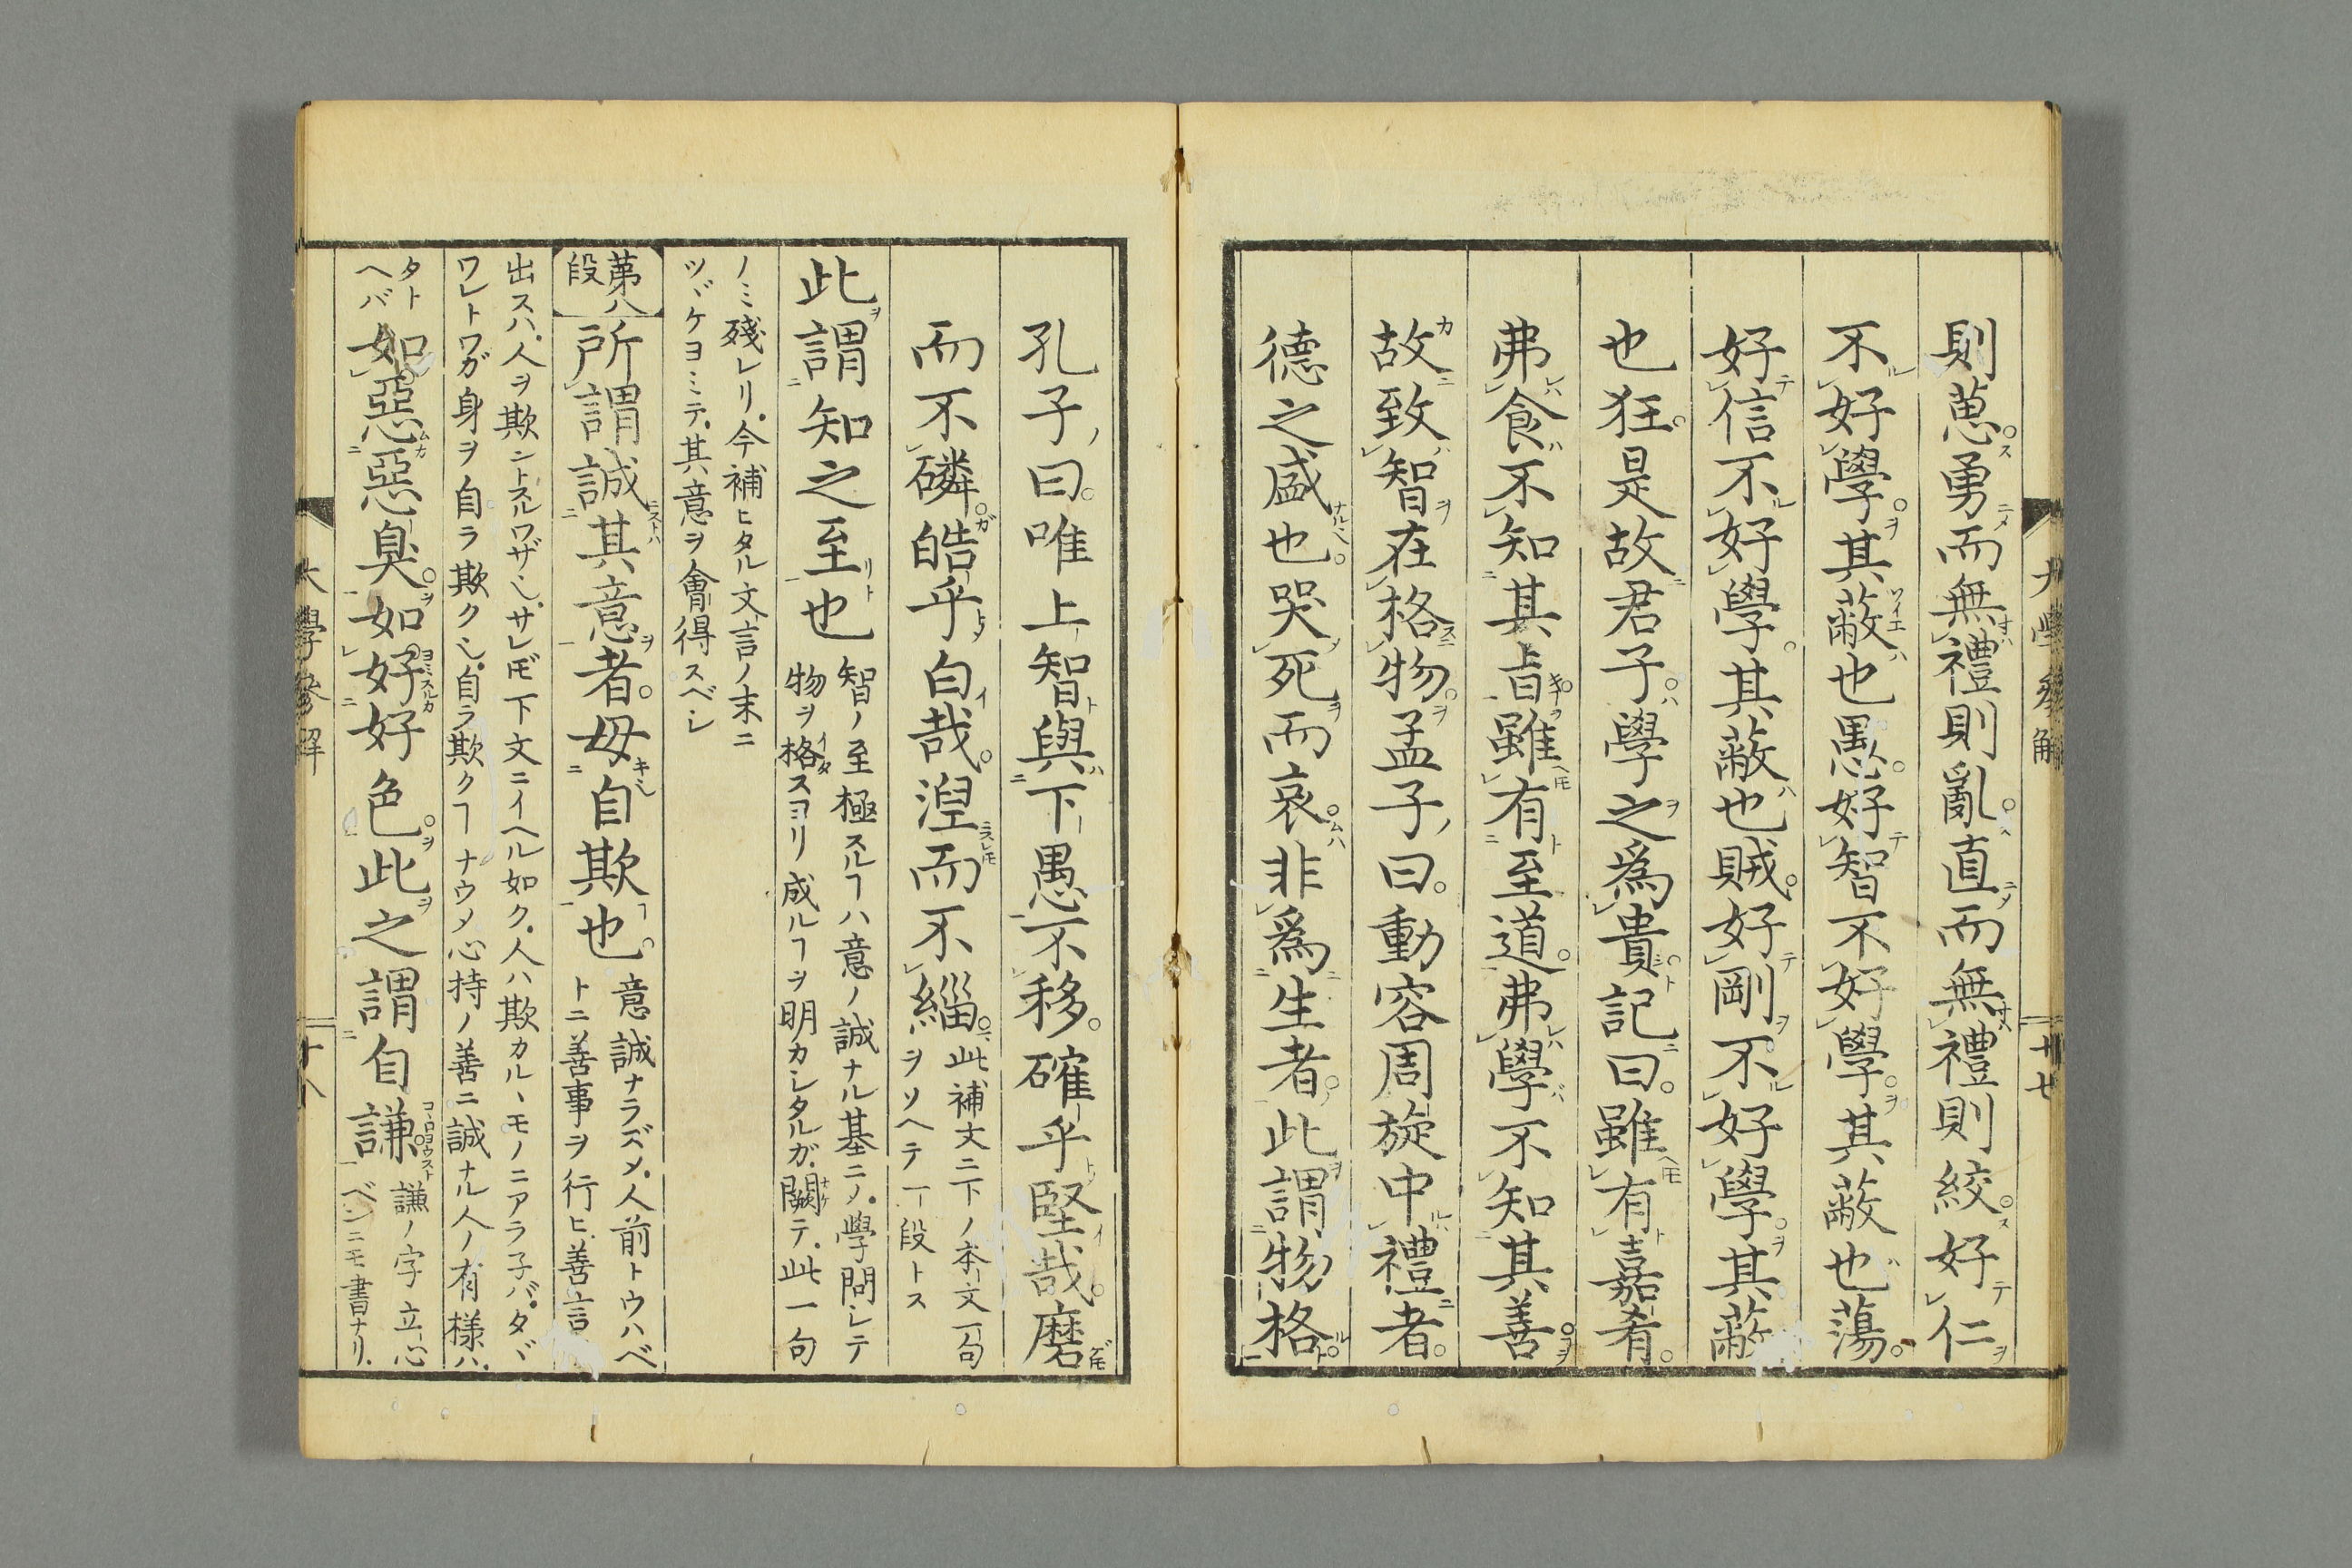 則葸勇而無禮則亂直而無禮則絞好仁
不好學其蔽也愚好智不好學其蔽也蕩
好信不好學其蔽也賊好剛不好學其蔽
也狂是故君子學之爲貴記曰雖有嘉肴
弗食不知其旨雖有至道弗學不知其善
故致智在格物孟子曰動容周旋中禮者
德之盛也哭死而哀非爲生者此謂物格
孔子曰唯上智與下愚不移確乎堅哉磨
而不磷皓乎白哉湼而不緇
此補文ニ下ノ本文一句
ヲソヘテ一段トス
此謂知之至也
智ノ至極スルヿハ意ノ誠ナル基ニメ學問シテ
物ヲ格スヨリ成ルヿヲ明カシタルガ闕テ此一句
ノミ殘レリ今補ヒタル文言ノ末ニ
ツヾケヨミテ其意ヲ會得スベシ
第八段
所謂誠其意者毋自欺也
意誠ナラズメ人前トウハベ
トニ善事ヲ行ヒ善言
出スハ人ヲ欺ントスルワザ乄サレモ下文ニイヘル如ク人ハ欺カルヽモノニアラ子バタヾ
ワレトワガ身ヲ自ラ欺ク乄自ラ欺クヿナウメ心持ノ善ニ誠ナル人ノ有様ハ
タト
ヘバ
如惡惡臭如好好色此之謂自謙
謙ノ字立心
ベンニモ書ナリ
大學參解
十八